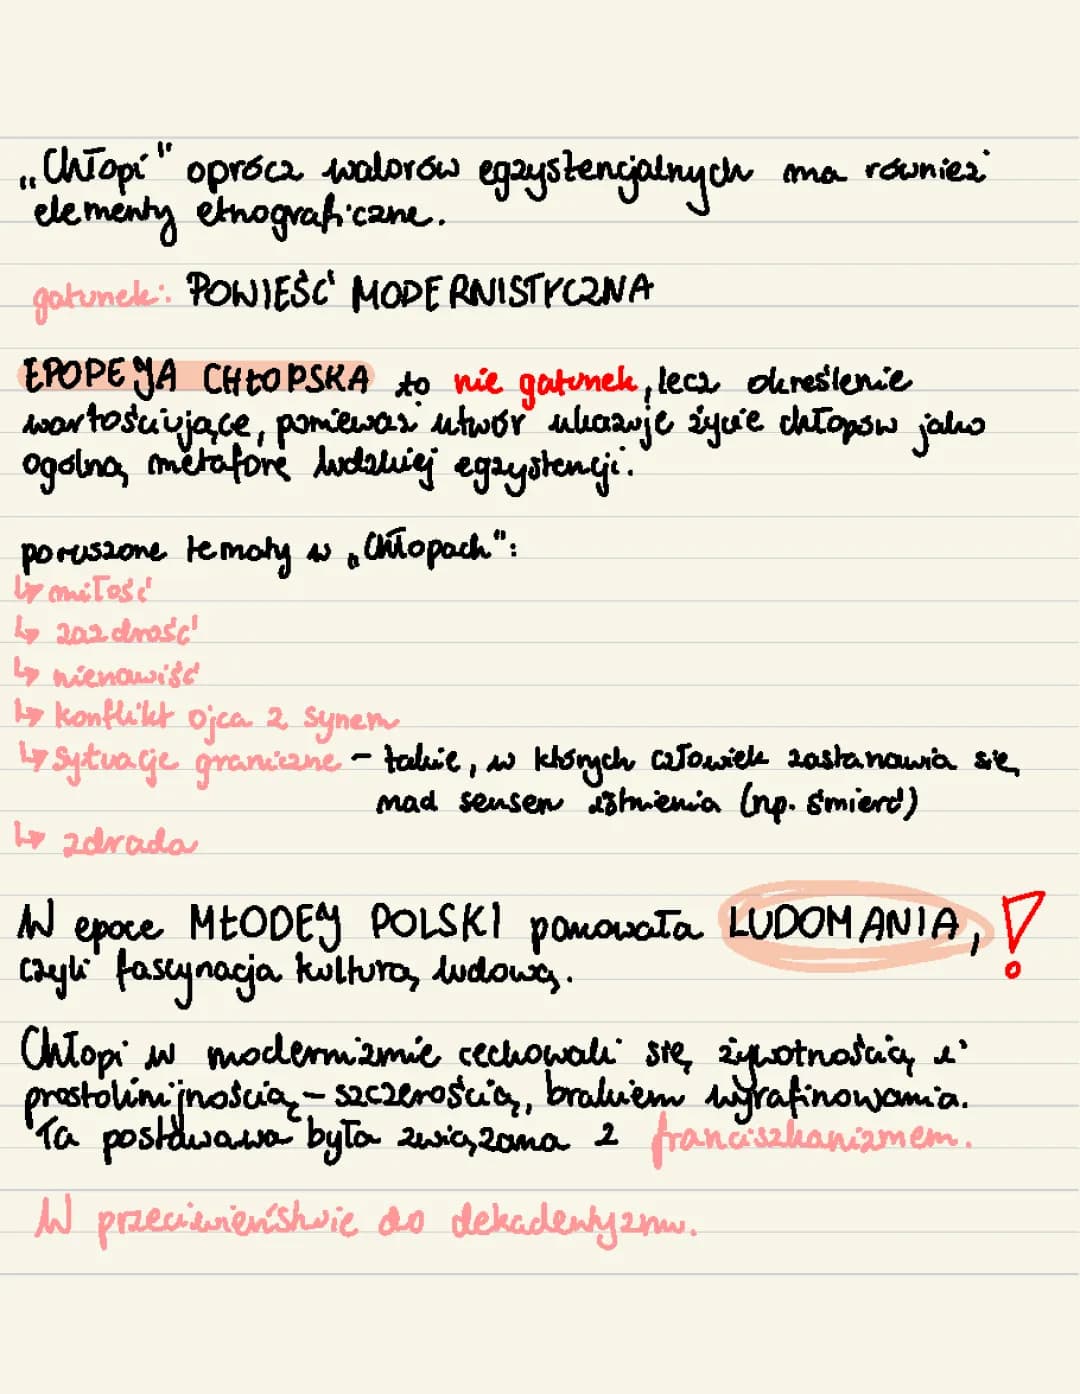 „Chłopi" oprócz walorów egzystencjalnych ma również
elementy etnograficzne.
gatunek: POWIEŚĆ MODERNISTYCZNA
EPOPEJA CHŁOPSKA to nie gatunek, lecz określenie
wartościujące, ponieważ utwór ukazuje życie chłopów jako
ogólną metaforę ludzkiej egzystencji.
poruszone tematy w „Chłopach":
↳ miłość
↳ zazdrość
↳ nienawiść
↳ konflikt ojca z synem
↳ sytuacje graniczne – takie, w których człowiek zastanawia się
nad sensem istnienia (np. śmierć)
↳ zdrada
W epoce MŁODEJ POLSKI panowała LUDOMANIA, !
czyli fascynacja kulturą ludową.
Chłopi w modernizmie cechowali się żywotnością i
prostolinijnością – szczerością, brakiem wyrafinowania.
Ta postawawa była związana z franciszkanizmem.
W przeciwieństwie do dekadentyzmu.